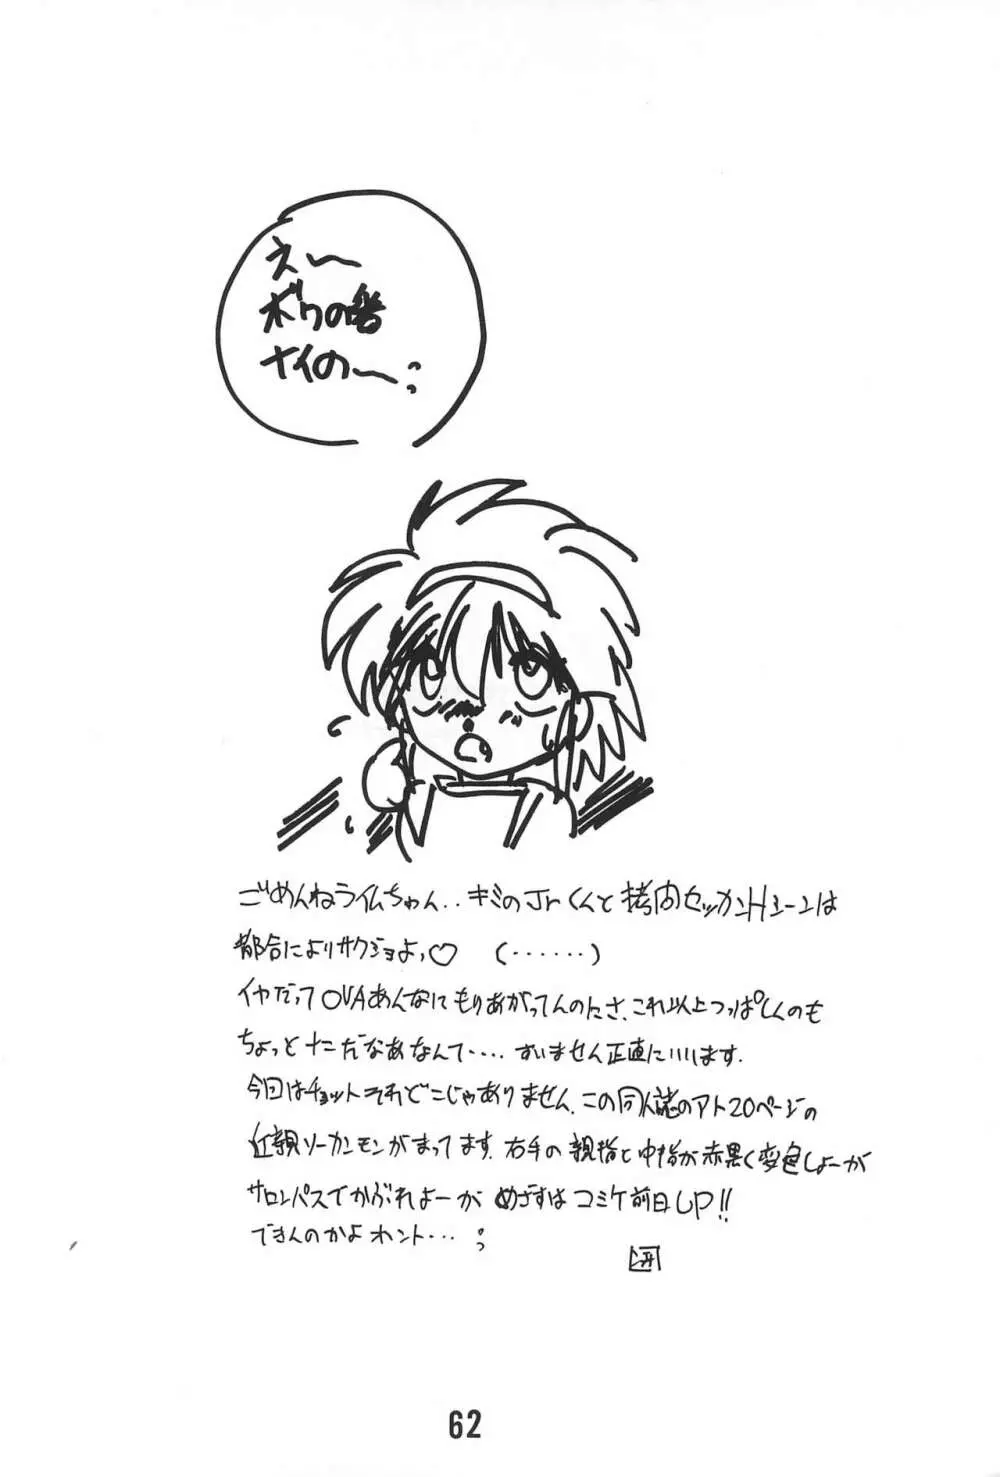 えー
ボクの番
ナイのー
ごめんねライムちゃん.. キミのJrくんと拷内セッカンHシーンは
都合によりサクジョよっ♡ (......)
イヤだってOVAあんなにもりあがってんのにさ、これ以上つっぱしんのも
ちょっとナニだなあなんて.... すいません正直にいいます.
今回はチョットそれどこじゃありません、この同人誌のアト20ページの
近親ソーカンモンがまってます. 右手の親指と中指が赤黒く変色しよーが
サロンパスでかぶれよーが めざすはコミケ前日UP!!
できんのかよホント...
62